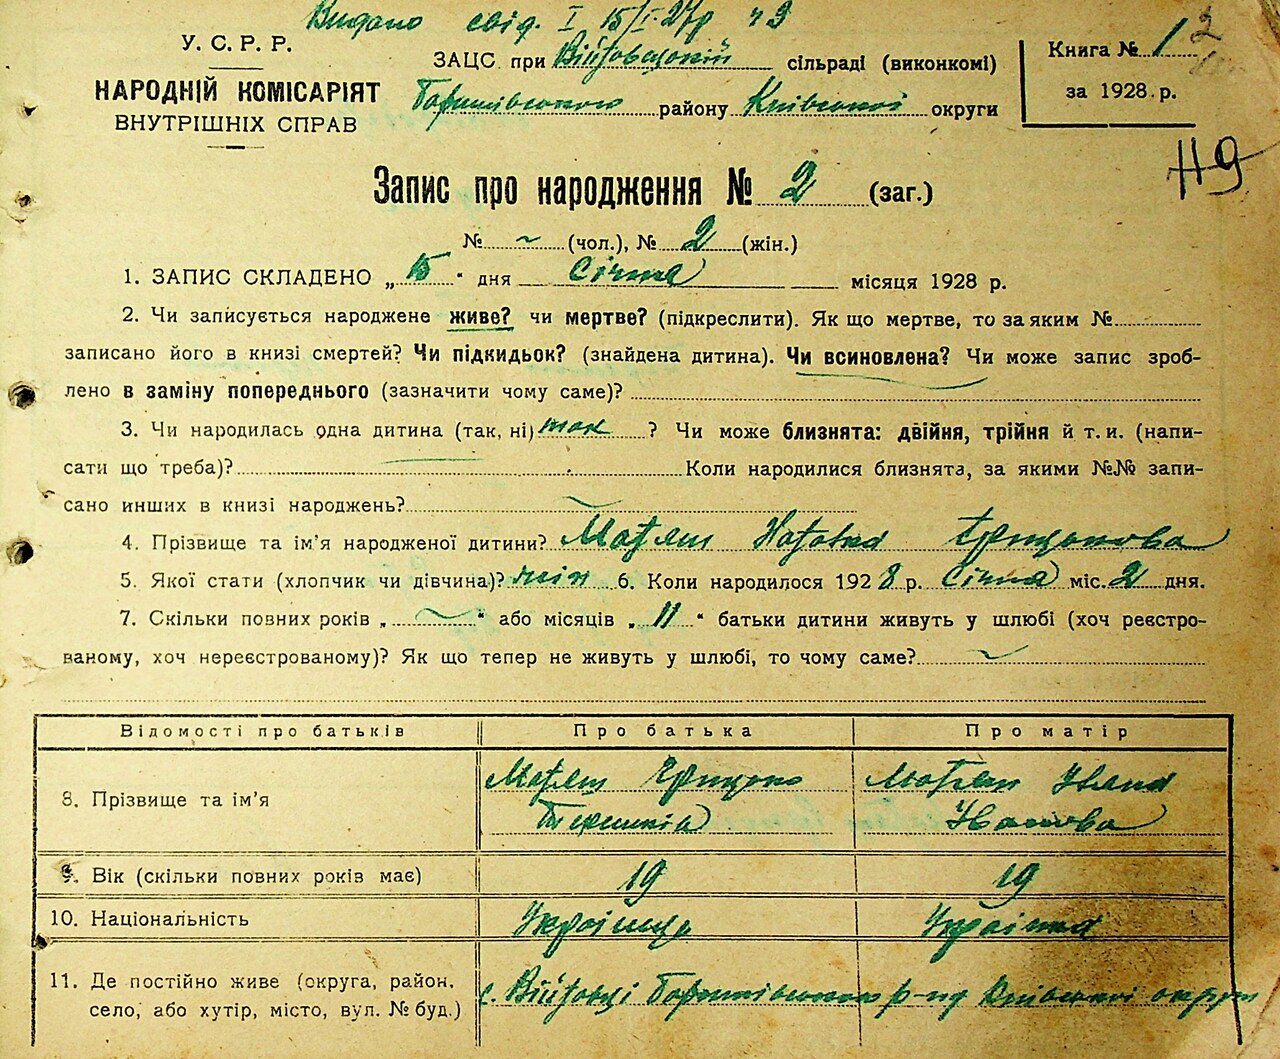 Видано свід. I 15/I-27р №3
У. С. Р. Р.
НАРОДНІЙ КОМІСАРІЯТ
ВНУТРІШНІХ СПРАВ
ЗАЦС при Війтовецькій сільраді (виконкомі)
Баришівського району Київської округи
Книга № 1 2
за 1928 р.
119
Запис про народження № 2 (заг.)
№ ~ (чол.), № 2 (жін.)
1. ЗАПИС СКЛАДЕНО „ 15 “ дня Січня місяця 1928 р.
2. Чи записується народжене живе? чи мертве? (підкреслити). Як що мертве, то за яким №
записано його в книзі смертей? Чи підкидьок? (знайдена дитина). Чи всиновлена? Чи може запис зроб-
лено в заміну попереднього (зазначити чому саме)?
3. Чи народилась одна дитина (так, ні) так ? Чи може близнята: двійня, трійня й т. и. (напи-
сати що треба)? Коли народилися близнята, за якими №№ запи-
сано инших в книзі народжень? ~
4. Прізвище та ім’я народженої дитини? Матяш Грицькова
5. Якої стати (хлопчик чи дівчина)? жін 6. Коли народилося 1928 р. Січня міс. 2 дня.
7. Скільки повних років „ ~ “ або місяців „ 11 “ батьки дитини живуть у шлюбі (хоч реєстро-
ваному, хоч нереєстрованому)? Як що тепер не живуть у шлюбі, то чому саме? ~
Відомості про батьків Про батька Про матір
8. Прізвище та ім’я Матяш Грицько Матяш Уляна
Іванова
9. Вік (скільки повних років має) 19 19
10. Національність Українець Українка
11. Де постійно живе (округа, район,
село, або хутір, місто, вул. № буд.) с. Війтовці Баришівського р-ну Київської округи